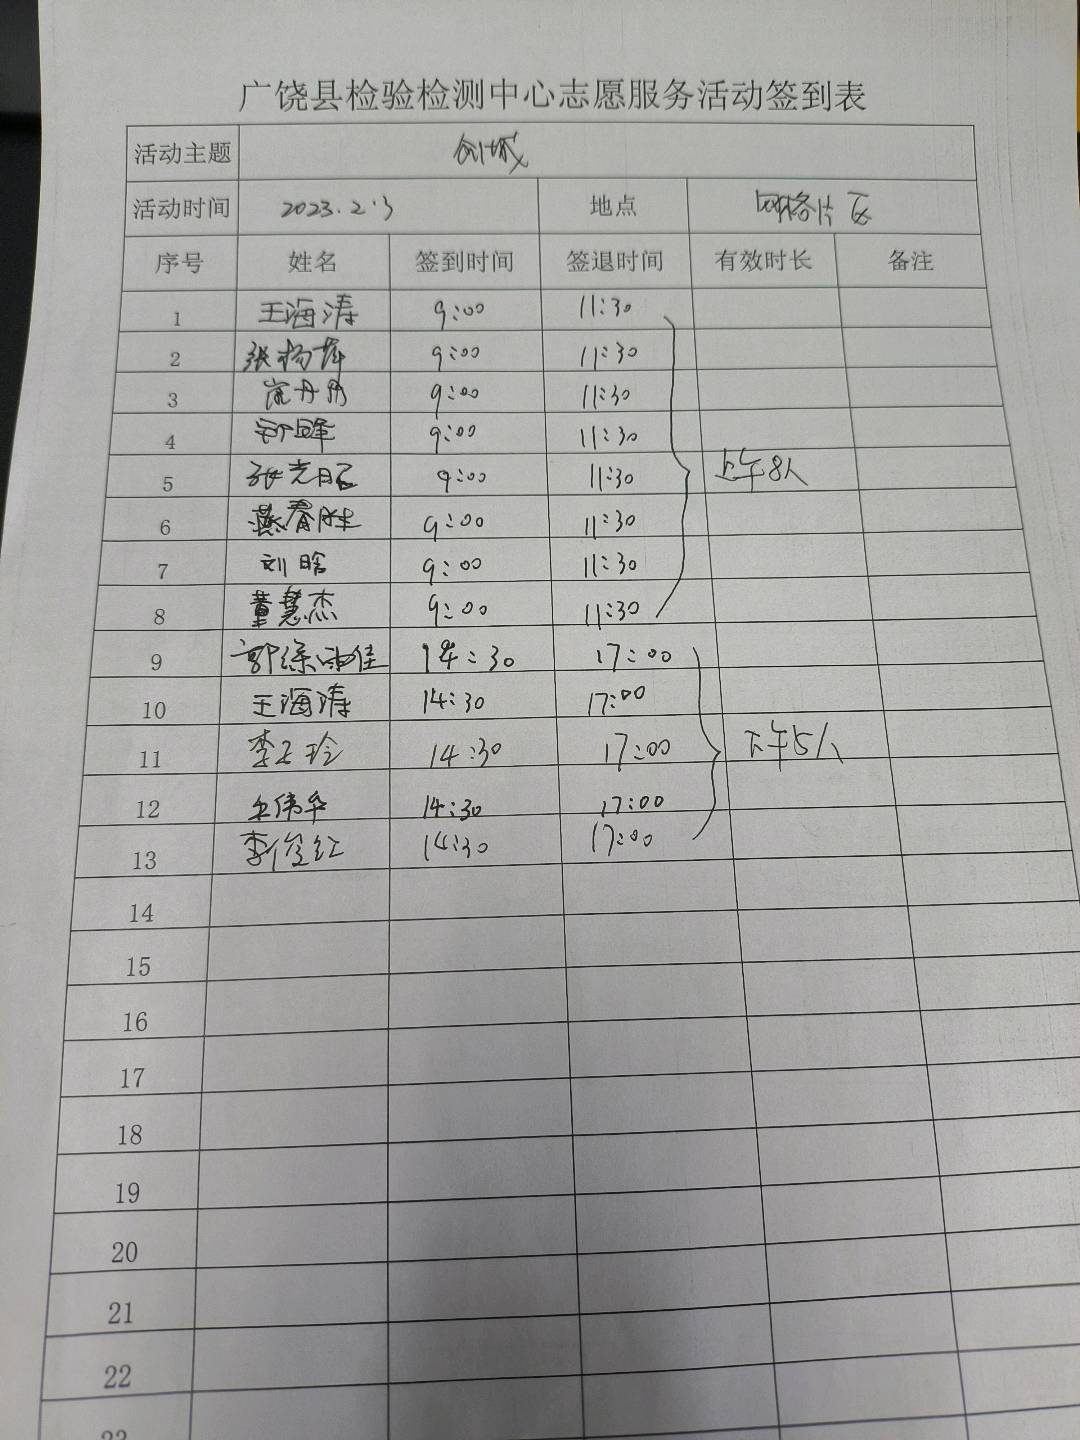 广饶县检验检测中心志愿服务活动签到表
活动主题 创城
活动时间 2023.2.3 地点 网格片区
序号 姓名 签到时间 签退时间 有效时长 备注
1 王海涛 9:00 11:30
2 张杨 9:00 11:30
3 崔丹丹 9:00 11:30
4 9:00 11:30
5 张光明 9:00 11:30 上午8人
6 燕春胜 9:00 11:30
7 刘晗 9:00 11:30
8 董慧杰 9:00 11:30
9 郭徐雨佳 14:30 17:00
10 王海涛 14:30 17:00
11 李玉玲 14:30 17:00 下午5人
12 王伟华 14:30 17:00
13 李俊红 14:30 17:00
14
15
16
17
18
19
20
21
22
23